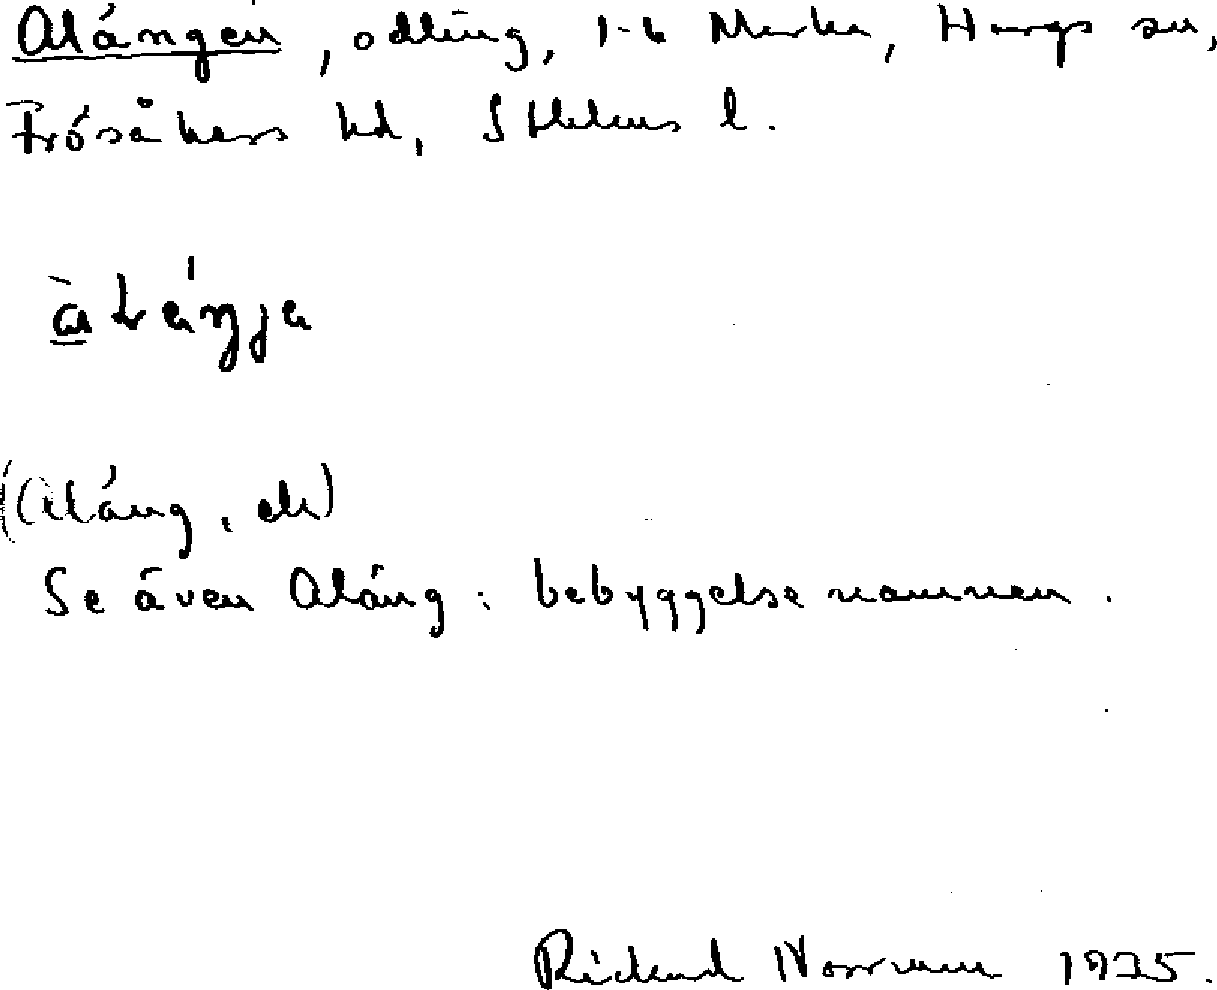 Alängen, odling, 1-6 Marka, Hargs sn,
Frösåkers hd, Sthlms l.
(Aläng, ck)
Se även Aläng : bebyggelsenamnen.
Rickard Norrman 1935.